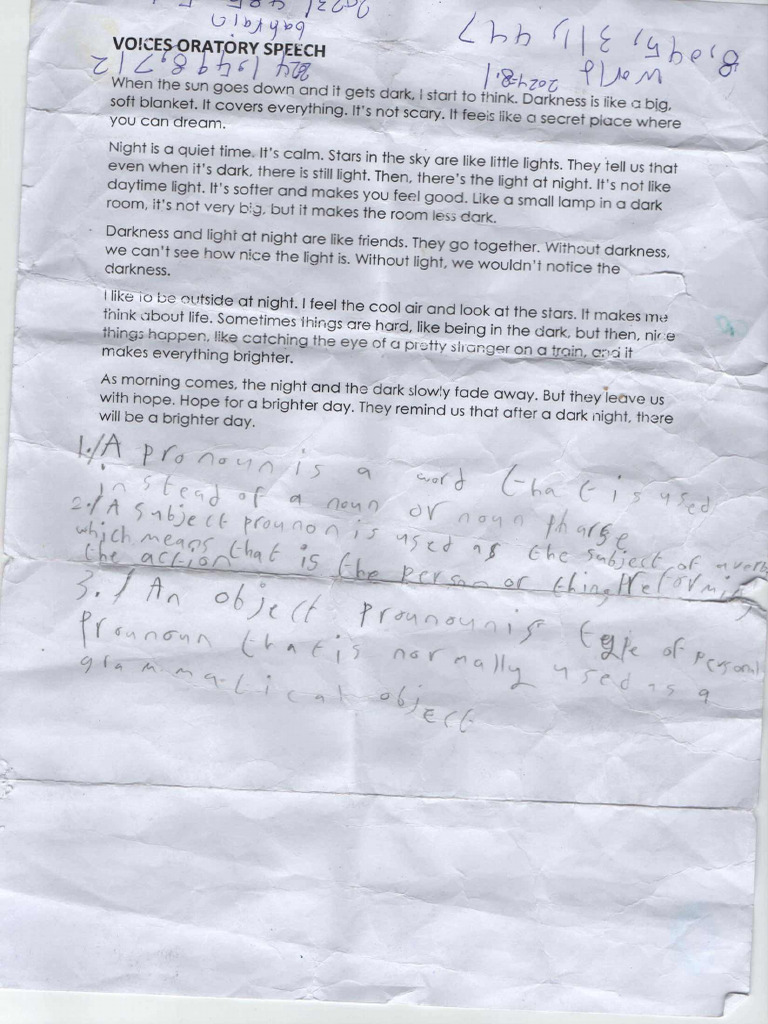 8,045,311,447
world 2024-8.1
bahrain
VOICES ORATORY SPEECH
When the sun goes down and it gets dark, I start to think. Darkness is like a big,
soft blanket. It covers everything. It's not scary. It feels like a secret place where
you can dream.
Night is a quiet time. It's calm. Stars in the sky are like little lights. They tell us that
even when it's dark, there is still light. Then, there's the light at night. It's not like
daytime light. It's softer and makes you feel good. Like a small lamp in a dark
room, it's not very big, but it makes the room less dark.
Darkness and light at night are like friends. They go together. Without darkness,
we can't see how nice the light is. Without light, we wouldn't notice the
darkness.
I like to be outside at night. I feel the cool air and look at the stars. It makes me
think about life. Sometimes things are hard, like being in the dark, but then, nice
things happen, like catching the eye of a pretty stranger on a train, and it
makes everything brighter.
As morning comes, the night and the dark slowly fade away. But they leave us
with hope. Hope for a brighter day. They remind us that after a dark night, there
will be a brighter day.
1./A pronoun is a word that is used
instead of a noun or noun pharse
2./A subject prounon is used as the subject of a verb
which means that is the person or thing Preforming
the action
3./An object prounoun is type of personal
prounoun that is normally used as a
grammatical object